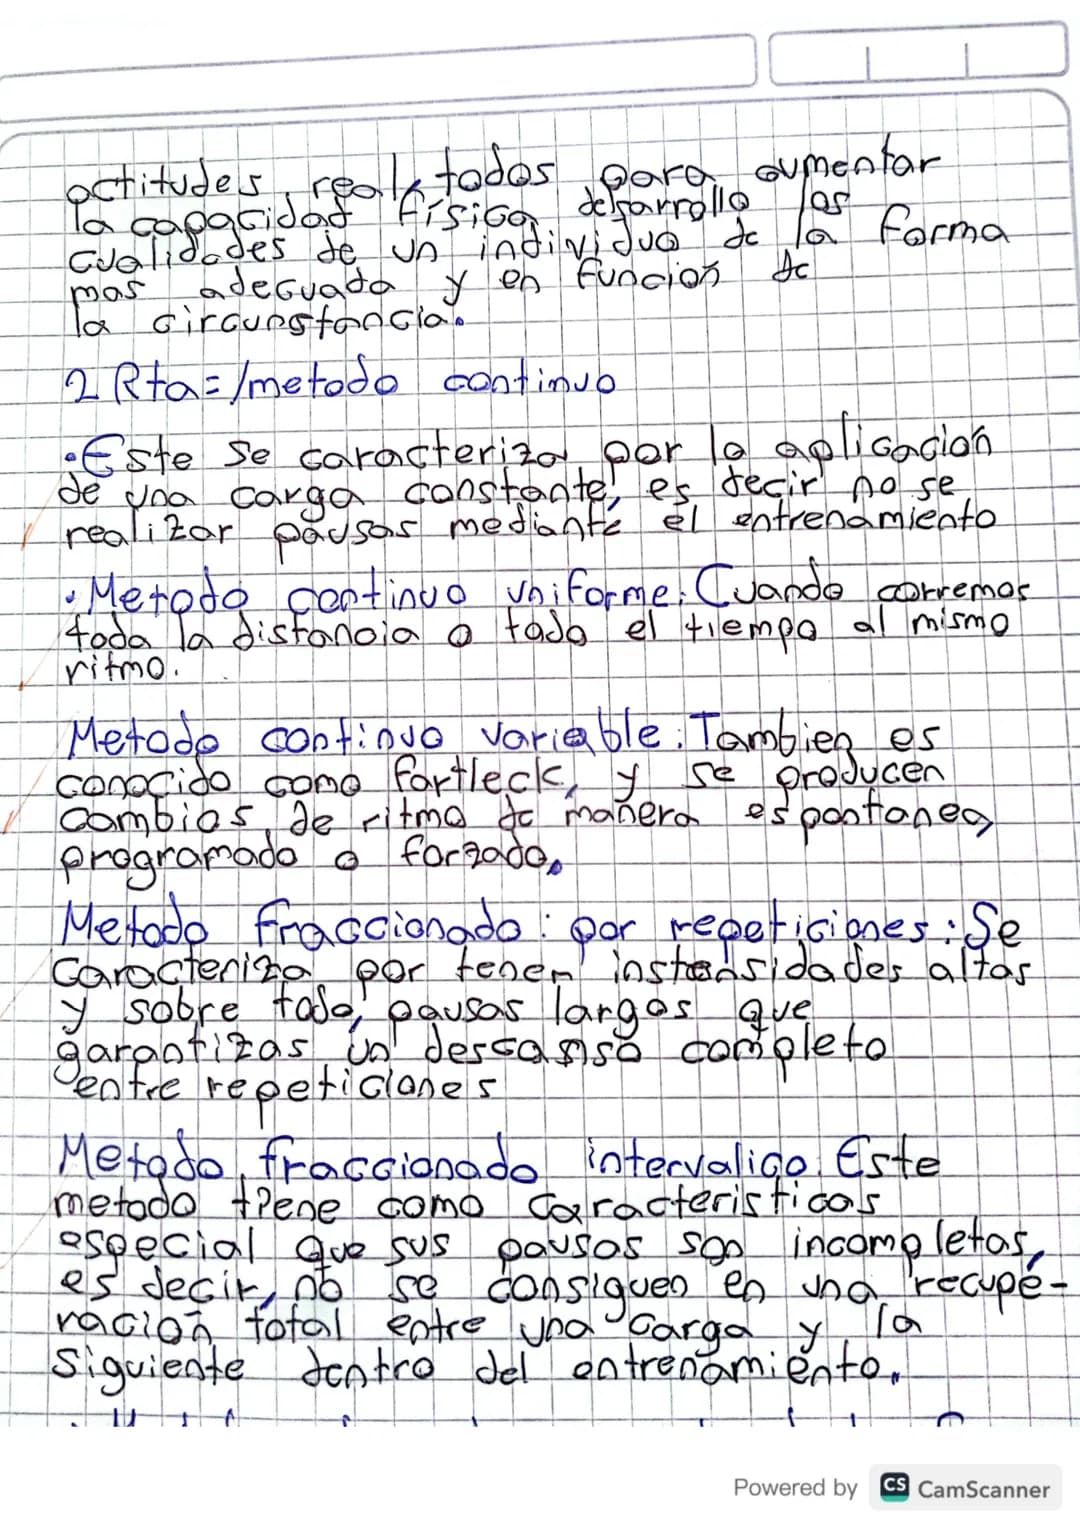 actitudes, todos para aumentar
la capacidad física desarrollo las
cualidades de un individuo de la forma
mas adecuada y en función de
la circunstancia.
2 Rta=/metodo continuo
•Este se caracteriza por la aplicación
de una carga constante, es decir no se
realizar pausas mediante el entrenamiento
• Metodo continuo uniforme: Cuando corremos
toda la distancia o todo el tiempo al mismo
ritmo.
Metodo continuo variable: Tambien es
conocido como fartleck, y se producen
cambios de ritmo de manera espontanea,
programado o forzado.
Metodo fraccionado: por repeticiones: Se
Caracteriza por tener altas
y sobre todo, pausas largas que
garantizas un completo
entre repeticiones
Metodo fraccionado intervalico. Este
metodo tiene como caracteristicas
especial que sus pausas son incompletas,
es decir, no se consiguen en una recupe-
ración total entre una carga y la
siguiente dentro del entrenamiento.
Powered by CS CamScanner